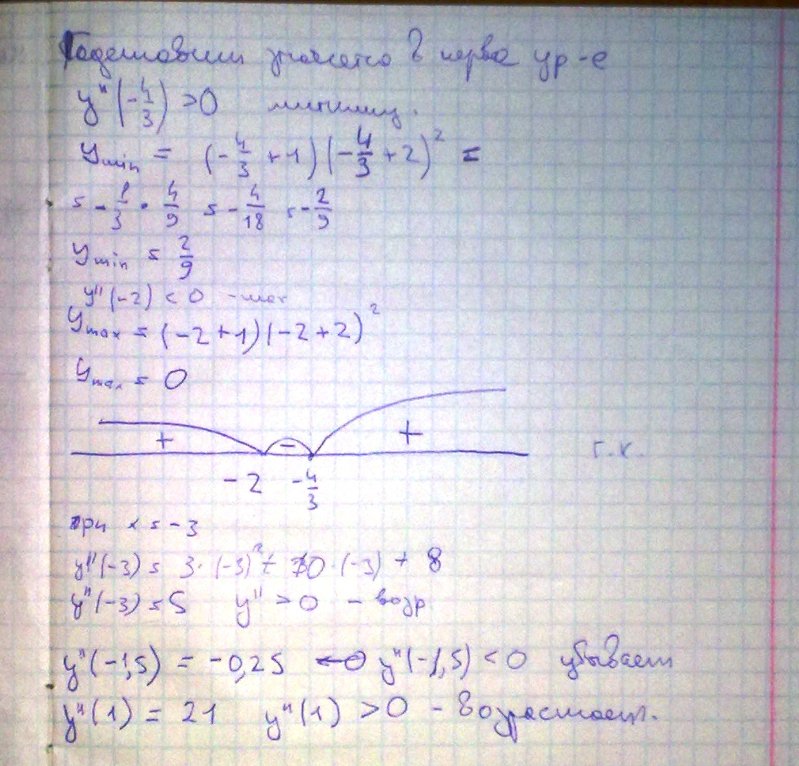 Подставим значения в перво ур-е
y"(-4/3) > 0 минимум.
y min = (-4/3 + 1)(-4/3 + 2)² =
= -1/3 · 4/9 = -4/18 = -2/9
y min = 2/9
y"(-2) < 0 - max
y max = (-2+1)(-2+2)²
y max = 0
+ - +
-2 -4/3
т.к.
при x = -3
y"(-3) = 3·(-3)² + 10·(-3) + 8
y"(-3) = 5 y" > 0 - возр
y"(-1,5) = -0,25 y"(-1,5) < 0 убывает
y"(1) = 21 y"(1) > 0 - возрастает.